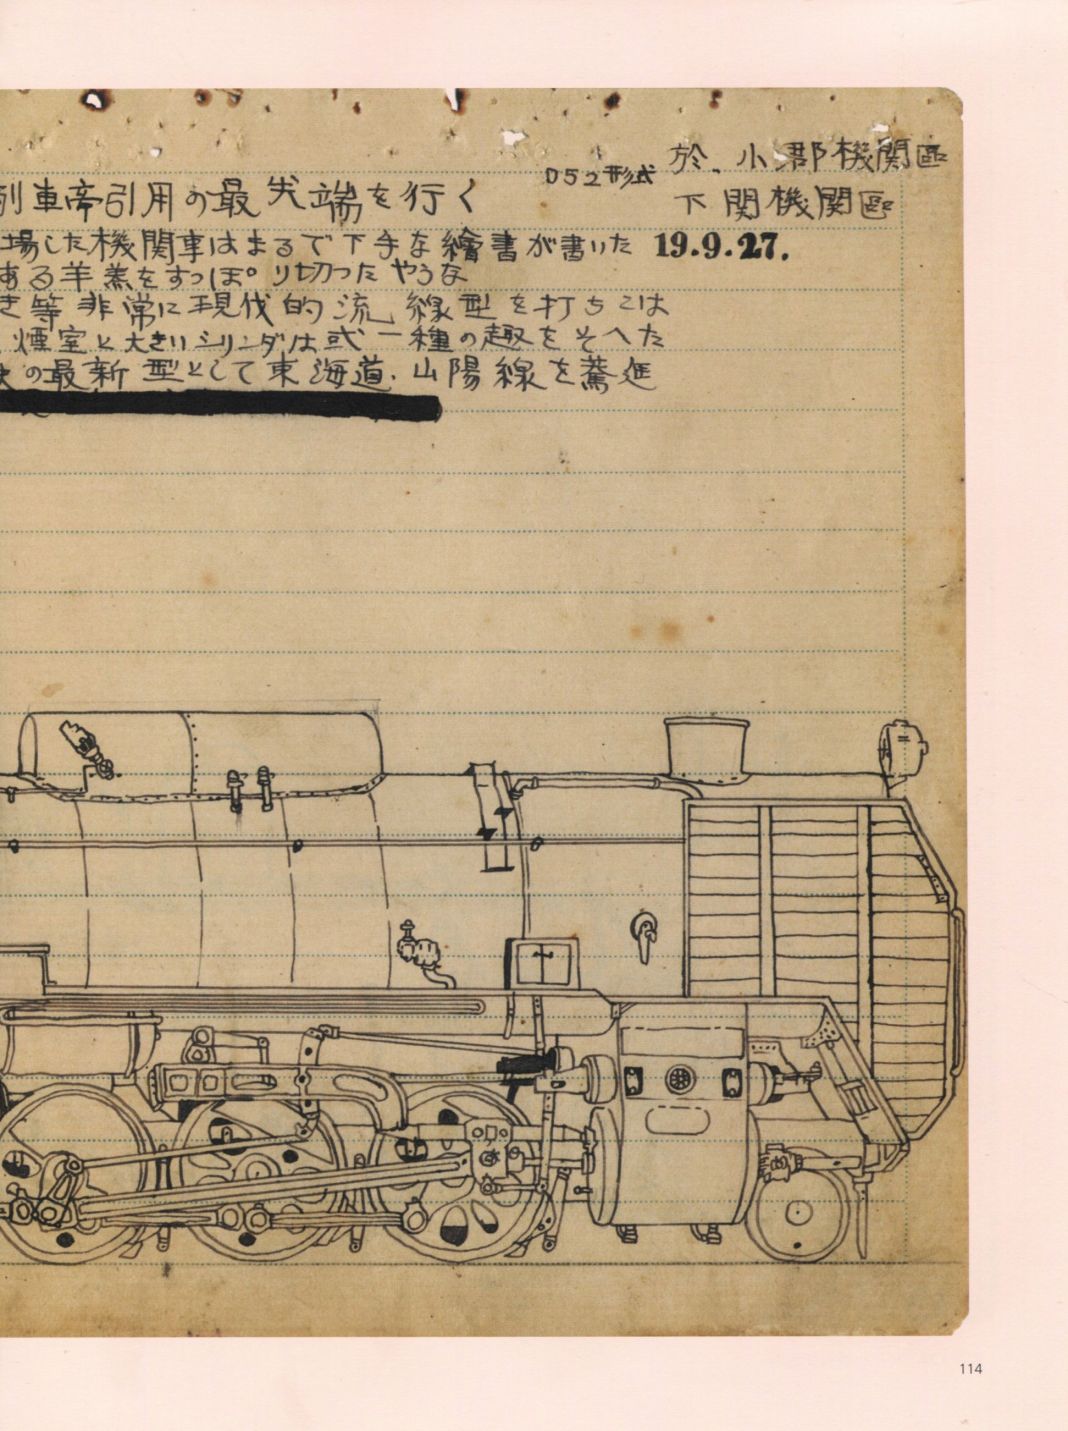 於.小郡機関區
D52形式
下関機関區
列車帝引用の最先端を行く
19.9.27.
場した機関車はまるで下手な繪書が書いた
ある羊羹をすっぽり切ったやうな
き等非常に現代的流線型を打ちこは
煙室と大きいシリンダは或一種の趣をそへた
の最新型として東海道.山陽線を驀進
114